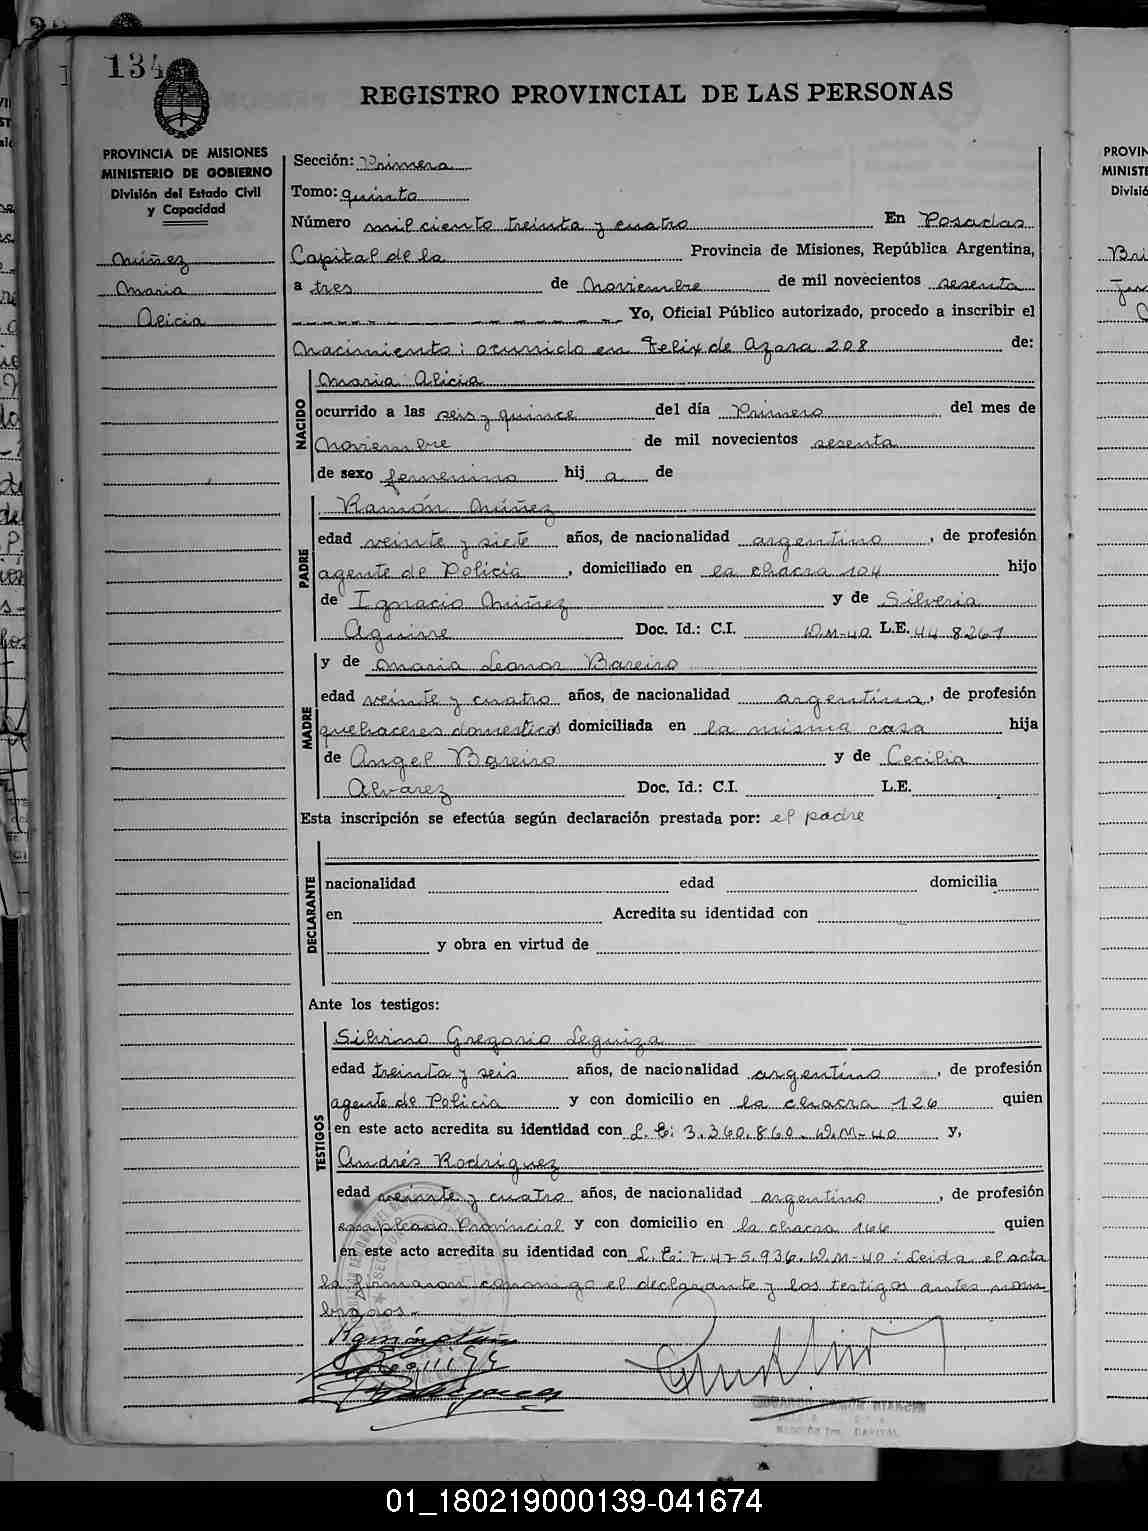 134
REGISTRO PROVINCIAL DE LAS PERSONAS
PROVINCIA DE MISIONES
MINISTERIO DE GOBIERNO
División del Estado Civil
y Capacidad
Núñez
Maria
Alicia
Sección: Primera
Tomo: quinto
Número mil ciento treinta y cuatro En Posadas
Capital de la Provincia de Misiones, República Argentina,
a tres de Noviembre de mil novecientos sesenta
Yo, Oficial Público autorizado, procedo a inscribir el
Nacimiento: ocurrido en Felix de Azara 208 de:
NACIDO
Maria Alicia
ocurrido a las seis y quince del día Primero del mes de
Noviembre de mil novecientos sesenta
de sexo femenino hij a de
PADRE
Ramón Núñez
edad veinte y siete años, de nacionalidad argentino, de profesión
agente de Policia, domiciliado en la chacra 104 hijo
de Ignacio Núñez y de Silveria
Aguirre Doc. Id.: C.I. D.M-40 L.E. 448261
MADRE
y de Maria Leonor Bareiro
edad veinte y cuatro años, de nacionalidad argentina, de profesión
quehaceres domesticos domiciliada en la misma casa hija
de Angel Bareiro y de Cecilia
Alvarez Doc. Id.: C.I. L.E.
Esta inscripción se efectúa según declaración prestada por: el padre
DECLARANTE
nacionalidad edad domicilia
en Acredita su identidad con
y obra en virtud de
Ante los testigos:
TESTIGOS
Silvino Gregorio Leguiza
edad treinta y seis años, de nacionalidad argentino, de profesión
agente de Policia y con domicilio en la chacra 126 quien
en este acto acredita su identidad con L.E: 3.360.860. D.M-40 y,
Andrés Rodriguez
edad veinte y cuatro años, de nacionalidad argentino, de profesión
empleado Provincial y con domicilio en la chacra 166 quien
en este acto acredita su identidad con L.E: 7.475.936. D.M-40: Leida el acta
la firmaron conmigo el declarante y los testigos antes nom-
brados.
Ramón Núñ
01_180219000139-041674